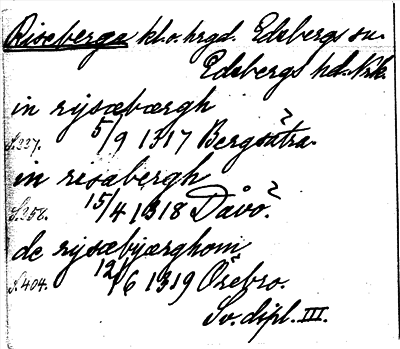 Riseberga kl.o. hrgd. Edsbergs sn.
Edsbergs hd. Nrk.
in rysæbærgh
S.337. 5/9 1317 Bergsätra.
in resabergh
S.258. 15/4 1318 Dåvö?
de rysæbyærghom
S.404. 12/6 1319 Örebro.
Sv. dipl. III.